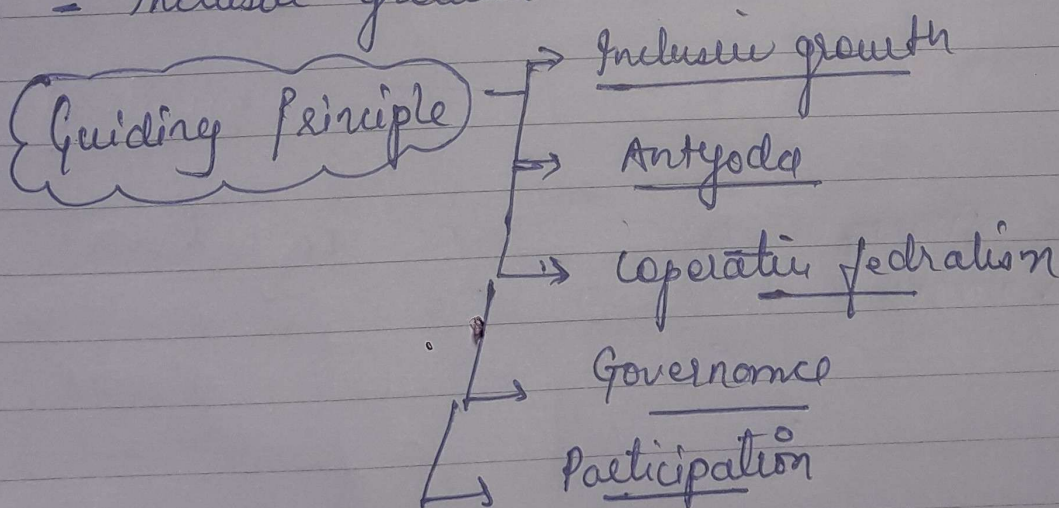 Guiding Principle
Inclusive growth
Antyoda
Coperative fedralism
Governance
Participation